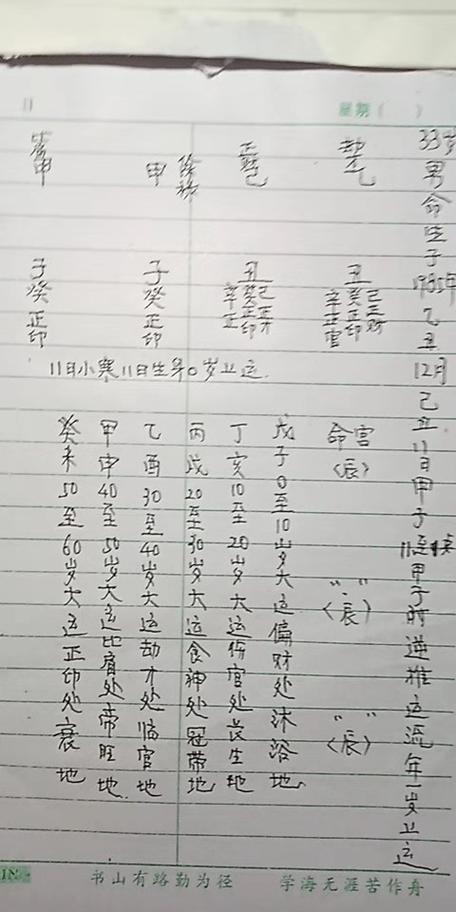 星期( )
33岁男命生于1985年乙丑12月己丑11日甲子11点甲子时逆推运流年一岁上运
劫乙
丑
辛癸己
正正正
官印财
命宫
(辰)
(辰)
(辰)
正财己
丑
辛癸己
戊子0至10岁大运偏财处沐浴地
丁亥10至20岁大运伤官处长生地
徐称
丙戌20至30岁大运食神处冠带地
甲
子癸正印
乙酉30至40岁大运劫才处临官地
甲申40至50岁大运比肩处帝旺地
甲
子癸正印
癸未50至60岁大运正印处衰地
11日小寒11日生年0岁上运.
书山有路勤为径 学海无涯苦作舟